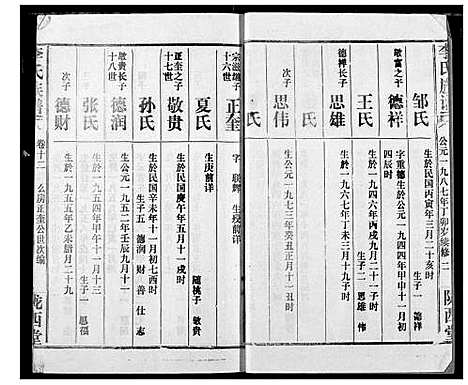 李氏族譜
公元一九八七年丁卯岁续修
隴西堂
邹氏
生於民国丙寅年三月二十亥时
生子一 德祥
敬富之子
德祥
字重德生於公元一九四四年甲申十一月初四辰时
王氏
生於一九四六年丙戌九月二十戌时
生子二 思雄 伟
德祥长子
思雄
生於一九六七年丁未三月十九戌时
次子
思伟
生公元一九七三年癸丑正月十一丑时
氏
宗滋继子
十六世
正奎
字 联辉 生殁前详
夏氏
生庚前详
随桃子 敬贵
正奎之子
十七世
敬贵
生於民国庚午年五月十一戌时
孙氏
生於民国辛未年十一月初七酉时
生子五 德润 财 善 仕 志
敬贵长子
十八世
德润
生公元一九五二年壬辰九月十一
张氏
生於一九五四年甲午十一月十三
生子一 思福
次子
德财
生於一九五五年乙未腊月二十九
李氏族譜
卷十二
么房正奎公世次编
隴西堂